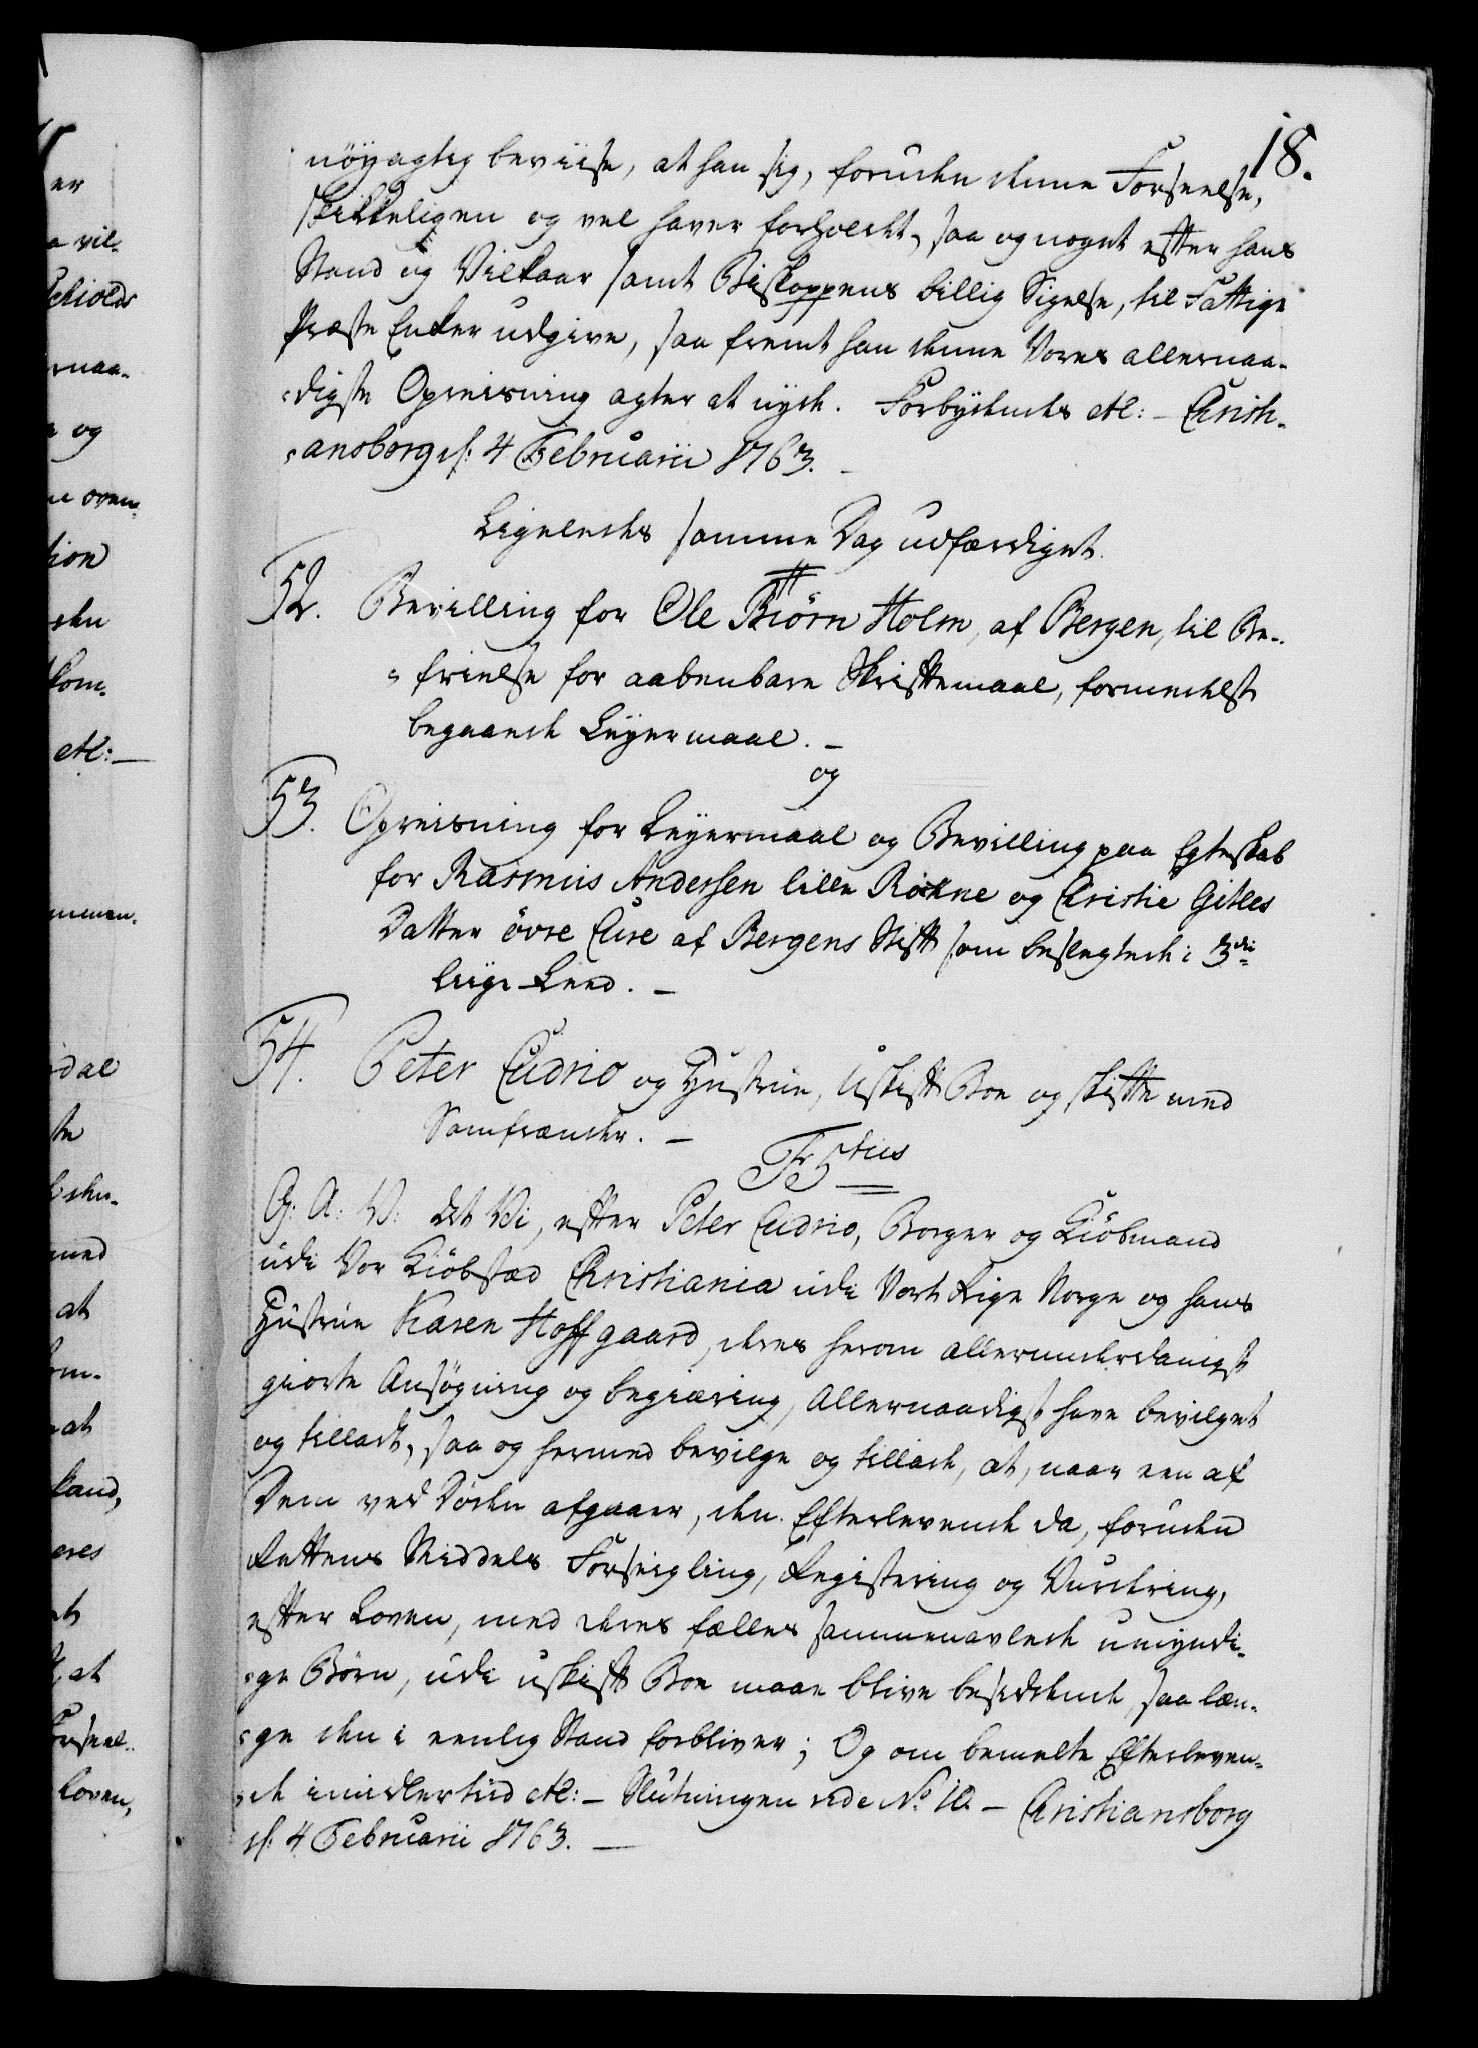 18.
nöyagtig beviise, at han sig, foruden denne Forseelse,
skikkeligen og vel haver forholdt, saa og noget efter hans
Stand og Vilkaar samt Biskoppens billig Sigelse, til Fattige
Præste Enker udgive, saa fremt han denne Vores allernaa-
digste Opreisning agter at nyde. Forbydendes etc: - Christi-
ansborg d: 4 Februarii 1763. -
Ligeledes samme Dag udfærdiget.
52. Bevilling for Ole Biörn Holm, af Bergen, til Be-
frielse for aabenbare Skriftemaal, formedelst
begaaede Leyermaal. -
og
53. Opreisning for Leyermaal og Bevilling paa Egteskab
for Rasmus Andersen lille Röthne og Christie Gitles
Datter övre Eure af Bergens Stift som beslegtede i 3die
Liige Leed. -
54. Peter Eudrio og Hustrue, Uskift Boe og skifte med
Samfrænder. -
Fr 5tus
G: A: V: det Vi, efter Peter Eudrio, Borger og Kiöbmand
udi Vor Kiöbstæd Christiania udi Vort Rige Norge og hans
Hustrue Karen Hoffgaard, deres herom allerunderdanigst
giorte Ansögning og begiæring, Allernaadigst have bevilget
og tilladt, saa og hermed bevilge og tillade, at, naar een af
Dem ved Døden afgaaer, den Efterlevende da, foruden
Rettens Middels Forseigling, Registering og Vurdering,
efter Loven, med deres fælles sammenavlede umyndi-
ge Börn, udi uskift Boe maae blive besiddende, saa læn-
ge den i eenlig Stand forbliver; Og om bemelte Efterleven-
de imidlertiid etc: - Slutningen vide No. 10. - Christiansborg
d: 4 Februarii 1763. -